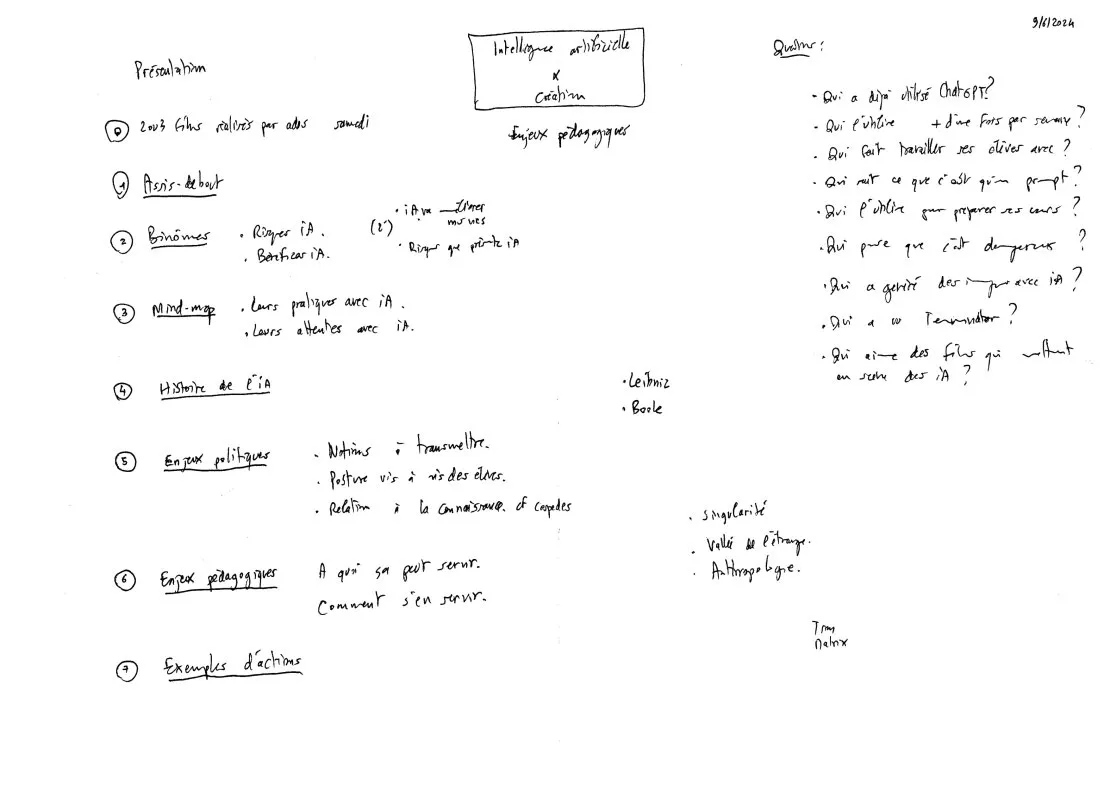 9/6/2024
Présentation
Intelligence artificielle
&
Création
Enjeux pédagogiques
0 2 ou 3 films réalisés par ados samedi
1 Assis-debout
2 Binômes
• Risques iA.
• Bénéfices iA.
(2')
• iA va
• Risque que iA
3 Mind-map
• Leurs pratiques avec iA.
• Leurs attentes avec iA.
4 Histoire de l'iA
• Leibniz
• Boole
5 Enjeux politiques
• Notions à transmettre.
• Posture vis à vis des élèves.
• Relation à la connaissance. cf
• Singularité
• Vallée de l'étrange.
• Anthropologie.
6 Enjeux pédagogiques
A quoi ça peut servir.
Comment s'en servir.
Tron
Matrix
7 Exemples d'actions
Questions :
• Qui a déjà utilisé ChatGPT?
• Qui l'utilise + d'une fois par semaine ?
• Qui fait travailler ses élèves avec ?
• Qui sait ce que c'est qu'un prompt ?
• Qui l'utilise pour préparer ses cours ?
• Qui pense que c'est dangereux ?
• Qui a généré des images avec iA ?
• Qui a vu Terminator ?
• Qui aime des films qui mettent
en scène des iA ?